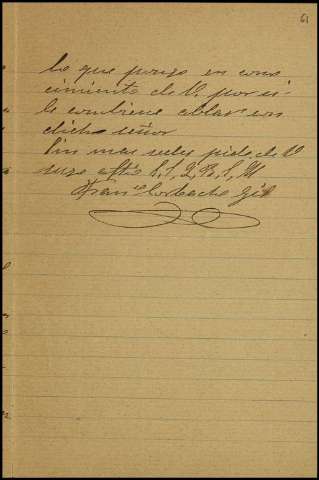 61
lo que pongo en cono
cimiento de V. por si
le combiene ablar con
dicho señor
Sin mas se des pide de V
suyo afto S, S, Q, B, S, M
Franco Corbacho Gil